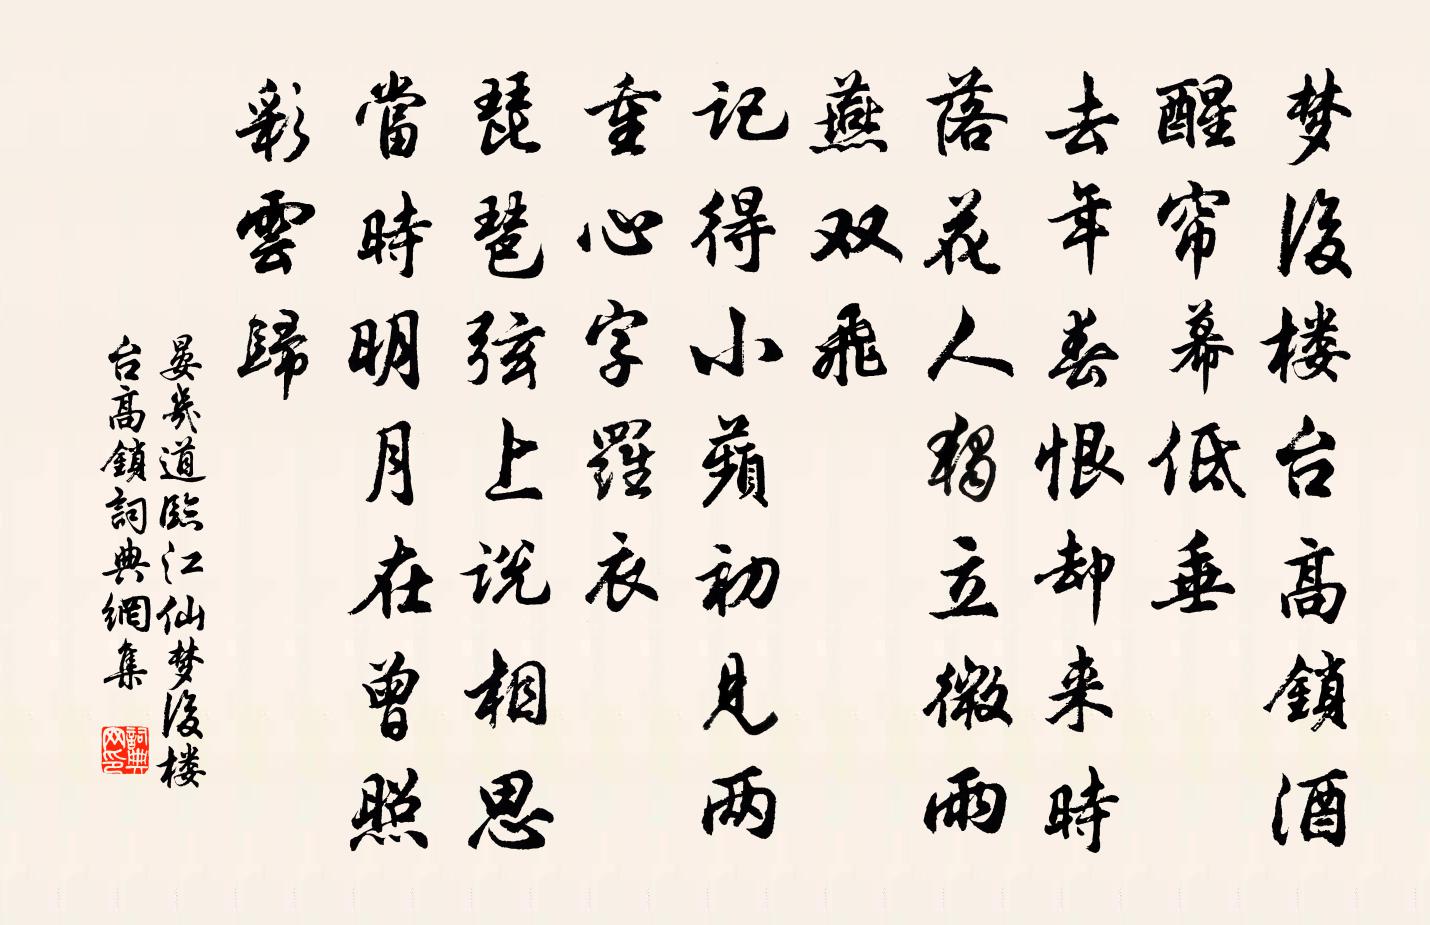 梦後楼台高鎖酒
醒帘幕低垂
去年春恨却来時
落花人獨立微雨
燕双飛
记得小蘋初見两
重心字羅衣
琵琶弦上说相思
當時明月在曾照
彩雲歸
晏幾道臨江仙梦後楼
台高鎖詞典網集
詞典
网印